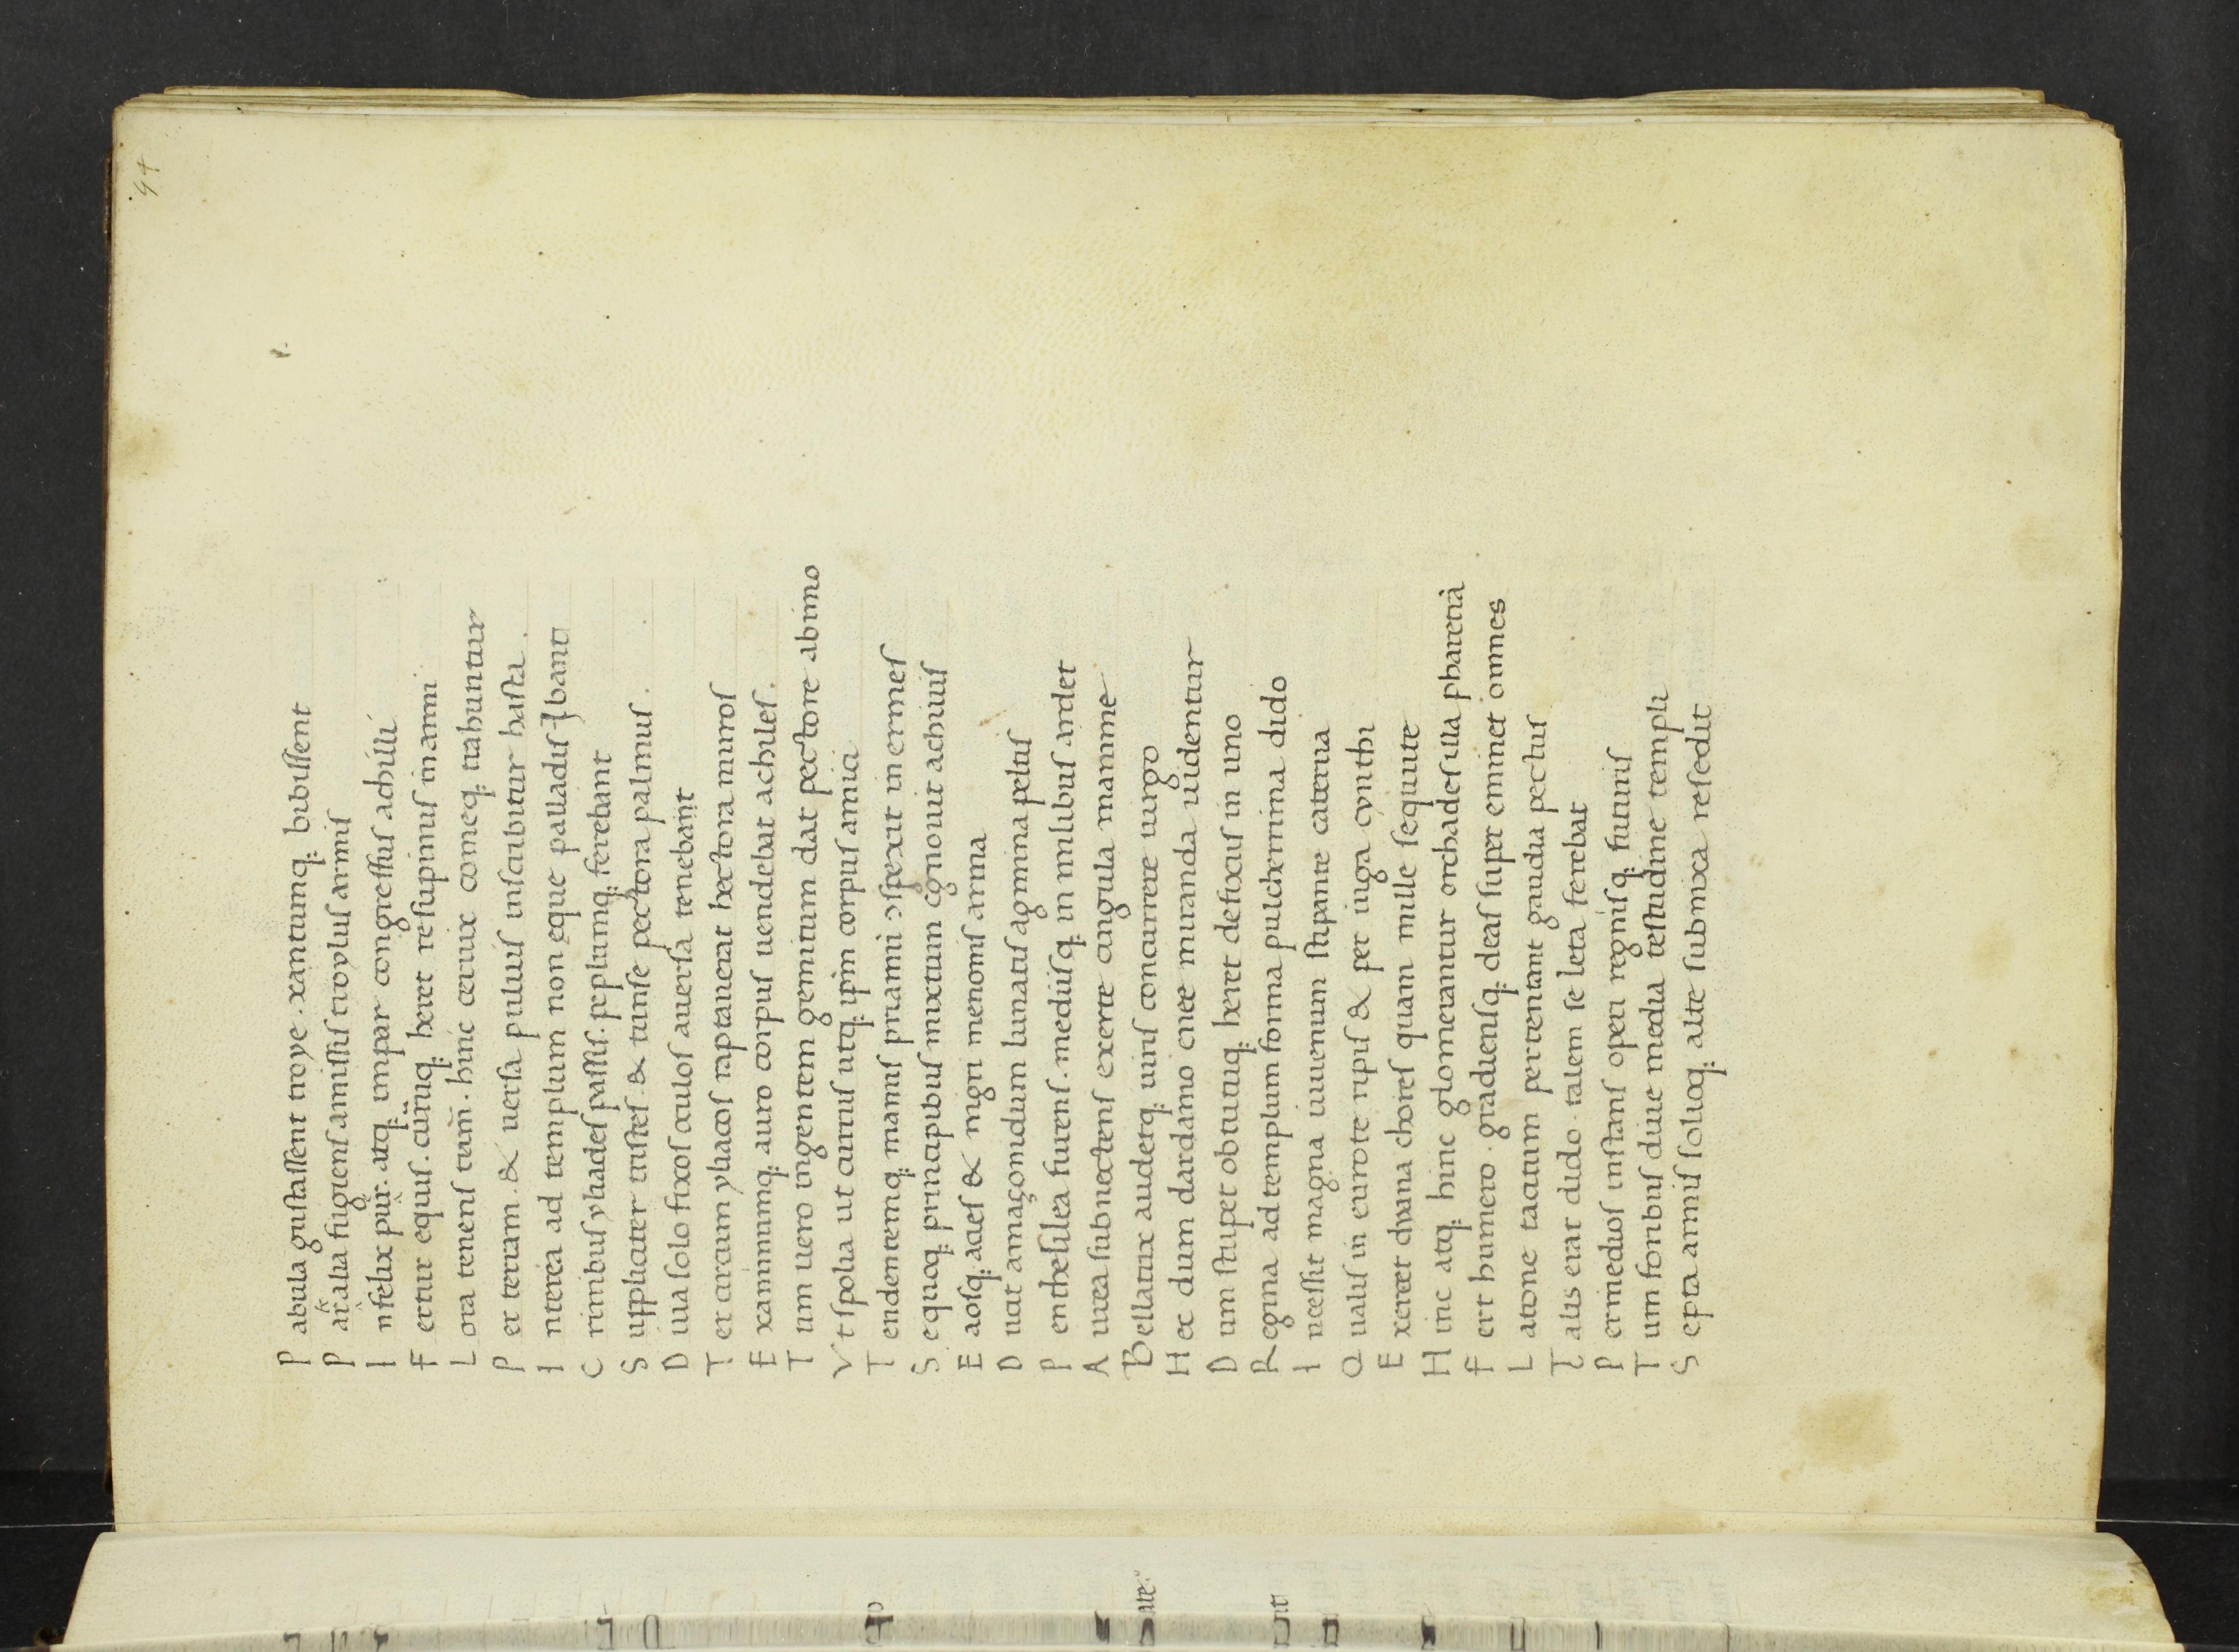 94
P abula gustassent troye. xantumq; bibissent
P ar alia fugiens amissis troylus armis
I nfelix puer. atq; impar congressus achilli
F ertur equis. curruq; heret resupinus inanni
L ora tenens tum̄. hinc ceruix comeq; trahuntur
P er terram. & uersa puluis inscribitur hasta.
I nterea ad templum non eque palladis ibant
C rinibus yliades passis. peplumq; ferebant
S uppliciter tristes. & tunse pectora palmis.
D iua solo fixos oculos auersa tenebant
T er circum yliacos raptauerat hectora muros
E xanimumq; auro corpus uendebat achilles.
T um uero ingentem gemitum dat pectore abimo
V t spolia ut currus utq; ipm̄ corpus amici
T endentemq; manus priamni ↄspexit in ermes
S e quoq; principibus mixtum cognouit achiuis
E aosq; acies & nigri menonis arma
D ucit amaçonidum lunatis agmina peltis
P enthesilea furens. mediisq; in milibus ardet
A urea subnectens exerte cingula mamme
B ellatrix audetq; uiris concurrere uirgo
H ec dum dardanio enee miranda uidentur
D um stupet obtutuq; heret defixus in uno
R egina ad templum forma pulcherrima dido
I ncessit magna iuuenum stipante caterua
Q ualis in eurote ripis & per iuga cynthi
E xercet diana chores quam mille sequute
H inc atq; hinc glomerantur orchades illa pharetrā
F ert humero. gradiensq; deas super eminet omnes
L atone tacitum pertentant gaudia pectus
T alis erat dido. talem se leta ferebat
P er medios instans operi regnisq; futuris
T um foribus diue media testudine templi
S epta armis solioq; alte subnixa resedit